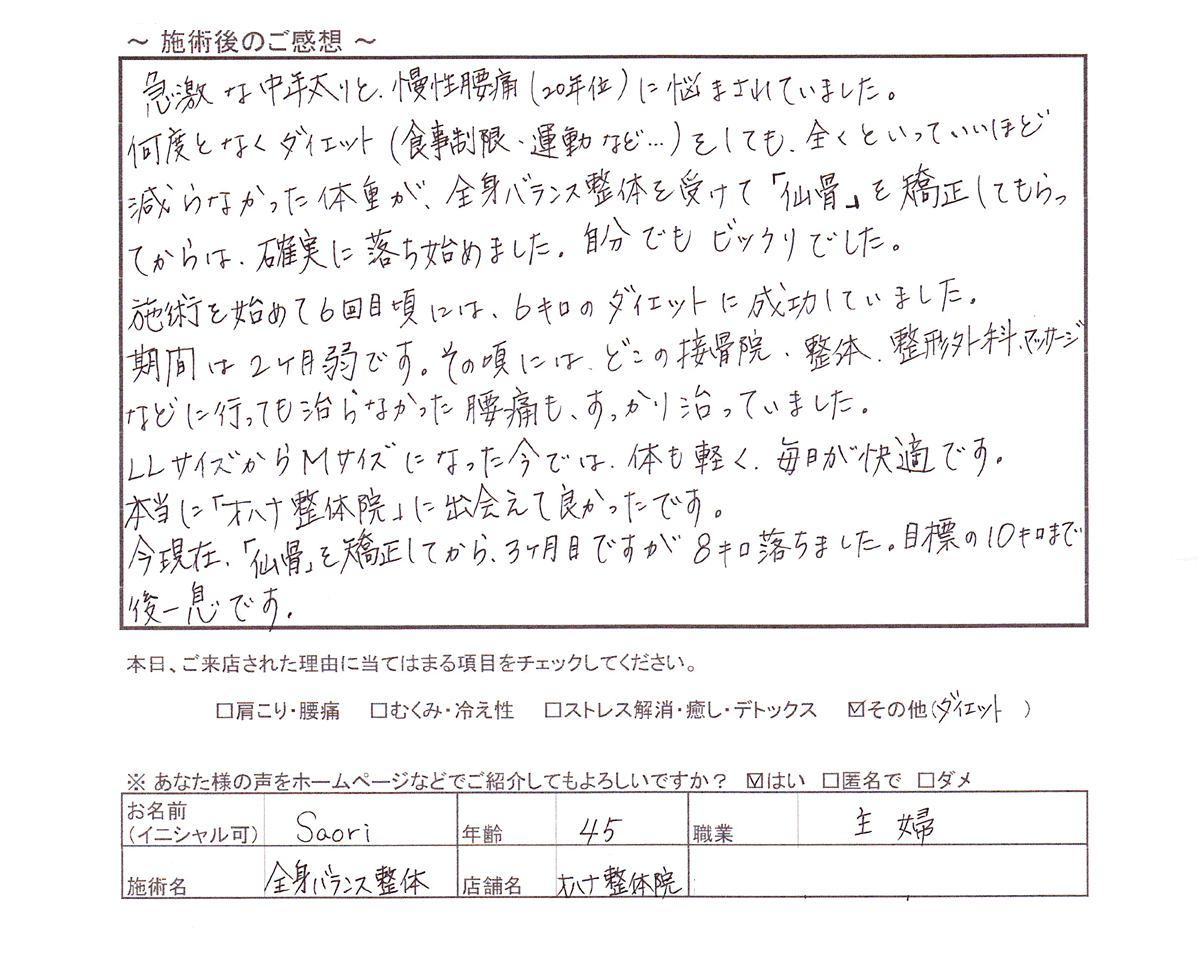 ～ 施術後のご感想 ～
急激な中年太りと、慢性腰痛（20年位）に悩まされていました。
何度となくダイエット（食事制限・運動など…）をしても、全くといっていいほど
減らなかった体重が、全身バランス整体を受けて「仙骨」を矯正してもらっ
てからは、確実に落ち始めました。自分でもビックリでした。
施術を始めて6回目頃には、6キロのダイエットに成功していました。
期間は2ヶ月弱です。その頃には、どこの接骨院、整体、整形外科、マッサージ
などに行っても治らなかった腰痛も、すっかり治っていました。
LLサイズからMサイズになった今では、体も軽く、毎日が快適です。
本当に「オハナ整体院」に出会えて良かったです。
今現在、「仙骨」を矯正してから、3ヶ月目ですが8キロ落ちました。目標の10キロまで
後一息です。
本日、ご来店された理由に当てはまる項目をチェックしてください。
□肩こり・腰痛 □むくみ・冷え性 □ストレス解消・癒し・デトックス ☑その他（ダイエット ）
※ あなた様の声をホームページなどでご紹介してもよろしいですか？ ☑はい □匿名で □ダメ
お名前（イニシャル可） Saori 年齢 45 職業 主婦
施術名 全身バランス整体 店舗名 オハナ整体院